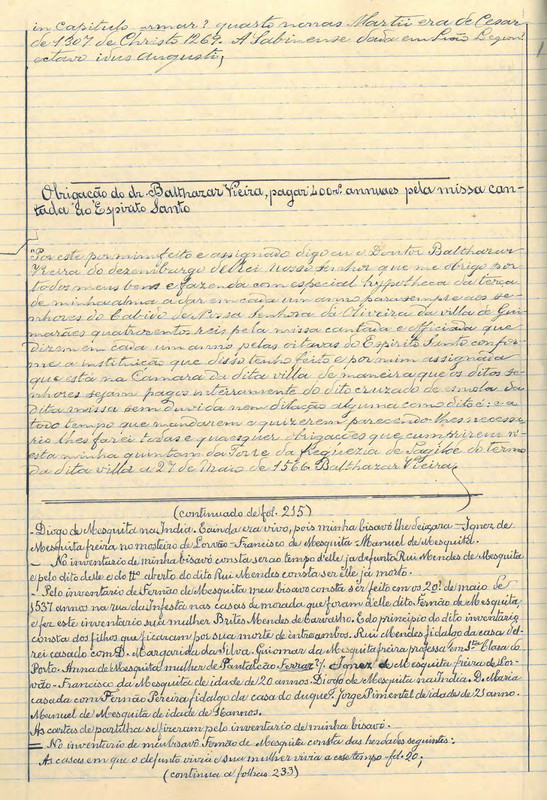 in capitulo armar? quarto nonas Martii era de Cesar
de 1307 de Christo 1267. A Sabinense dada em Leão Legion?
octavo idus augusti,
Obrigação do dr. Balthazar Vieira, pagar 400 r.s annuaes pela missa can-
tada do Espirito Santo
"Por este por mim feito e assignado digo eu o Doutor Balthazar
Vieira do desembargo delRei nosso senhor que me obrigo por
todos meus bens e fazenda com especial hypotheca da terça
de minha alma a dar em cada um anno para sempre aos se-
nhores do Cabido de Nossa Senhora da Oliveira da villa de Gui-
marães quatrocentos reis pela missa cantada e officiada que
dizem em cada um anno pelas oitavas do Espirito Santo confor-
me a instituição que disso tenho feito e por mim assignada
que está na Camara da dita villa de maneira que os ditos se-
nhores sejam pagos inteiramente do dito cruzado de esmola da
dita missa sem duvida nem dilação alguma como dito é: e a
todo tempo que mandarem e quizerem parecendo lhes necessa-
rio lhes farei todas e quaesquer obrigações que cumprirem n'
esta minha quintam da Torre da freguezia de Sagilde do termo
da dita villa a 27 de Maio de 1566. Balthazar Vieira,
(continuado de fol. 215)
- Diogo de Mesquita na India. E ainda era vivo, pois minha bisavó lhe deixara - Ignez de
Mesquita freira no mosteiro de Lorvão - Francisco de Mesquita - Manuel de Mesquita.
- No inventario de minha bisavó consta ser ao tempo d'elle ja defunto Rui Mendes de Mesquita
e pelo dito delle e do tt.º aberto do dito Rui Mendes consta ser elle já morto.
Pelo inventario de Fernão de Mesquita meu bisavó consta ser feito em os 20? de maio de
1537 annos na rua da Infesta nas casas da morada que foram d'elle dito Fernão de Mesquita,
e fez este inventario sua mulher Brites Mendes de Carvalho. E do principio do dito inventario
consta dos filhos que ficaram por sua morte de entre ambos. Rui Mendes fidalgo da casa del-
rei casado com D. Margarida da Silva. Guiomar da Mesquita freira professa em S.ta Clara do
Porto - Anna de Mesquita mulher de Pantaleão Ferraz?. Ignez de Mesquita freira de Lor-
vão - Francisco da Mesquita de idade de 20 annos. Diogo de Mesquita na India. D. Maria
casada com Fernão Pereira fidalgo da casa do duque?. Jorge Pimentel de idade de 21 anno.
Manuel de Mesquita de idade de 16 annos.
As cartas de partilha se fizeram pelo inventario de minha bisavó.
= No inventario de meu bisavó Fernão de Mesquita consta das herdades seguintes:
As casas em que o defunto vivia e sua mulher vivia a esse tempo - fol. 20;
(continua a folhas 233)